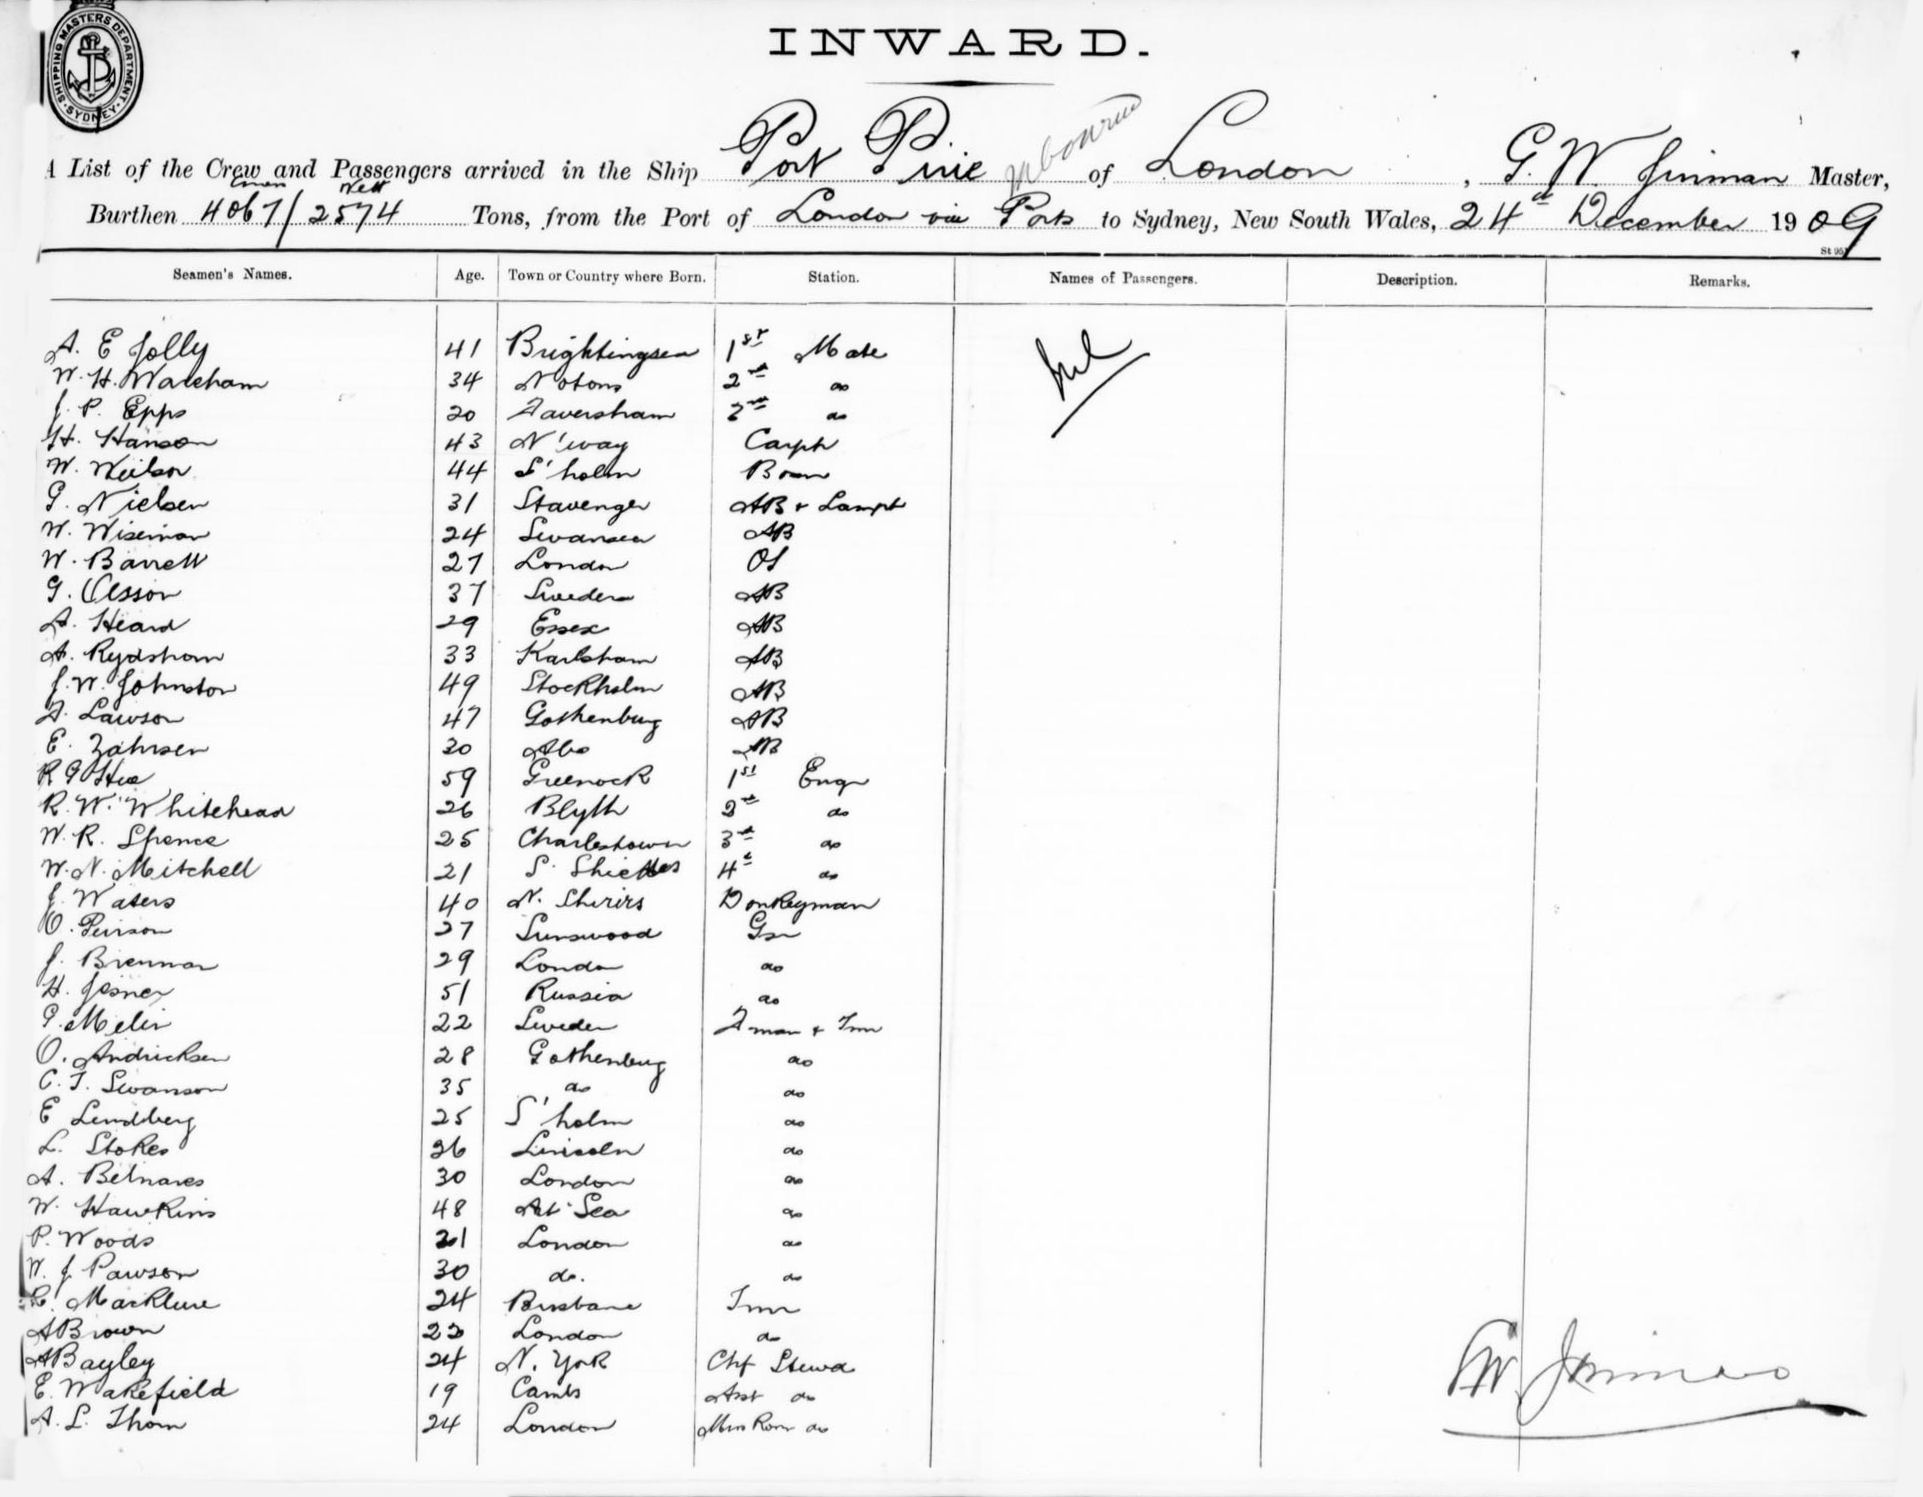 SHIPPING MASTERS DEPARTMENT · SYDNEY ·
INWARD.
A List of the Crew and Passengers arrived in the Ship Port Pirie of London, G. W. Jinman Master,
Burthen 4067/2574 Tons, from the Port of London via Ports to Sydney, New South Wales, 24th December 1909
Seamen's Names. Age. Town or Country where Born. Station. Names of Passengers. Description. Remarks.
A. E Jolly 41 Brightlingsea 1st Mate Nil
W. H. Wareham 34 2nd do
J. P. Epps 20 Faversham 2nd do
H. Hanson 43 N'way Carptr
W. 44 S'holm Bosn
G. Nielsen 31 Stavenger AB & Lampt
W. Wiseman 24 Swansea AB
W. Barrett 27 London OS
G. Olsson 37 Sweden AB
A. Heard 29 Essex AB
A. Rydstrom 33 Karlsham AB
J. W. Johnston 49 Stockholm AB
A. Lawson 47 Gothenburg AB
E. Zahrsen 30 Abo AB
R G 59 Greenock 1st Engr
R. W. Whitehead 26 Blyth 2nd do
W. R. Spence 25 Charlestown 3rd do
W. N. Mitchell 21 S. Shields 4th do
J. Waters 40 N. Donkeyman
O. 27 Gsr
J. Brennan 29 London do
H. Jesner 51 Russia do
P. Melin 22 Sweden Fman & Tmr
O. Andricksen 28 Gothenburg do
C. F. Swanson 35 do do
E Lendberg 25 S'holm do
L. Stokes 26 Lincoln do
A. Belnaves 30 London do
W. Hawkins 48 At Sea do
P. Woods 21 London do
W. J Pawson 30 do. do
Macklure 24 Brisbane Tmr
A Brown 22 London do
A Bayley 24 N. York Chf Stewd
E. Wakefield 19 Cambs Asst do
A. L. Thom 24 London Mess Room do
G W Jinman